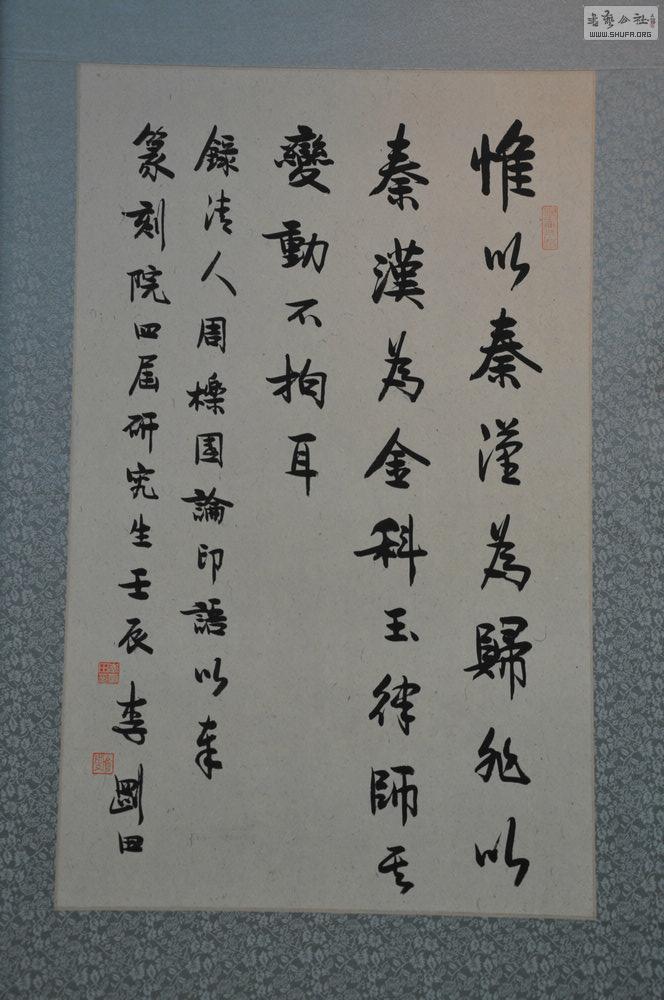 惟以秦漢為歸非以
秦漢為金科玉律師其
變動不拘耳
錄清人周櫟園論印語以奉
篆刻院四屆研究生壬辰
李剛田
WWW.SHUFA.ORG